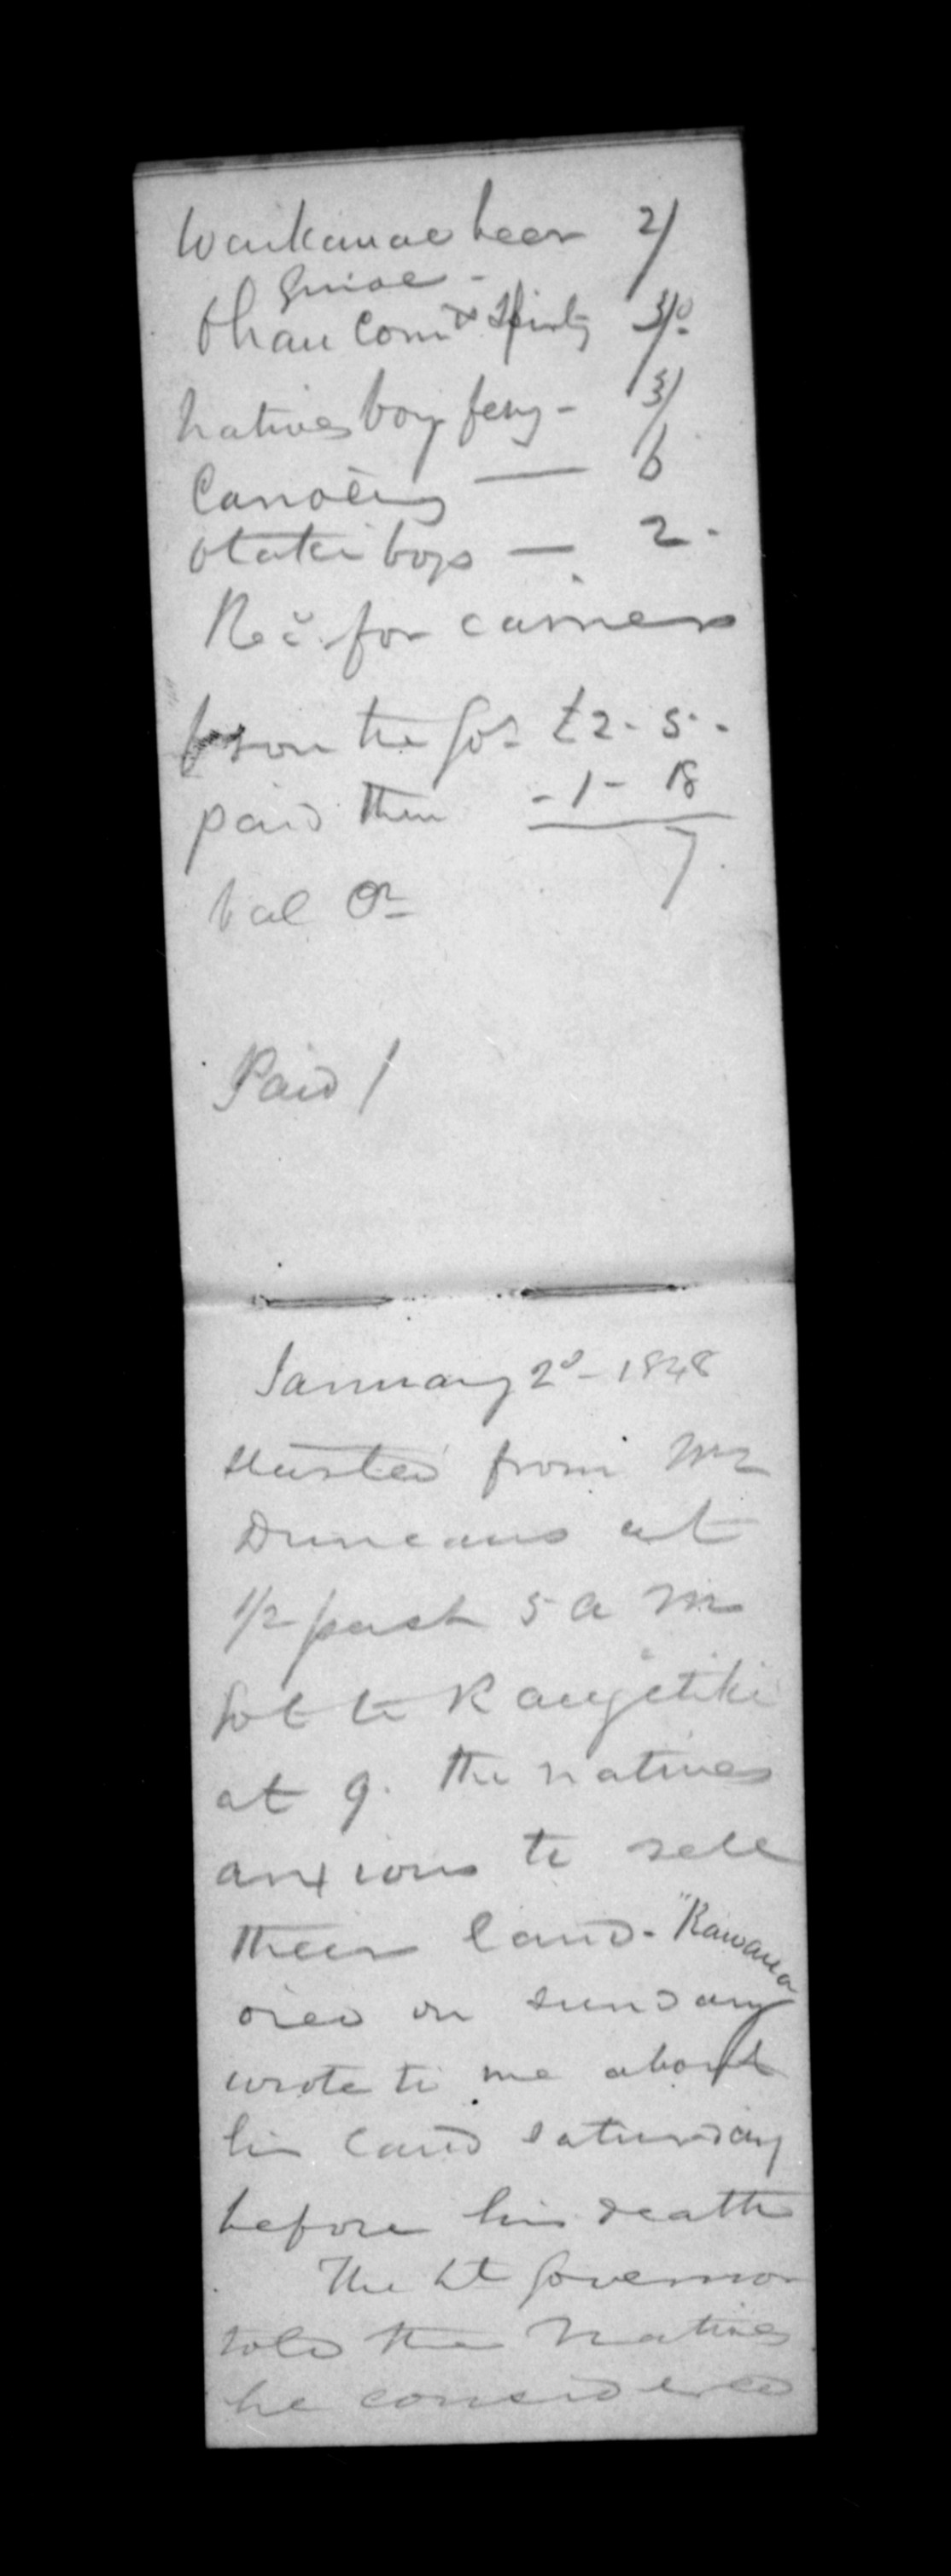 Waikanae beer 2/
Ohau Comd Spirits
natives boy ferry - 3/
Canoeing — 6
Otaki boys — 2 -
Recd. for carriers
from the Gov £2 - 5 -
paid them - 1 - 18
7
bal Or
Paid /
January 2d - 1848
Started from Mr
Duncans at
1/2 past 5 a m
Got to Rangitiki
at 9. The natives
anxious to sell
their land - "Rawana
died on sunday
wrote to me about
his land saturday
before his death
The Lt Governor
told the Natives
he considered